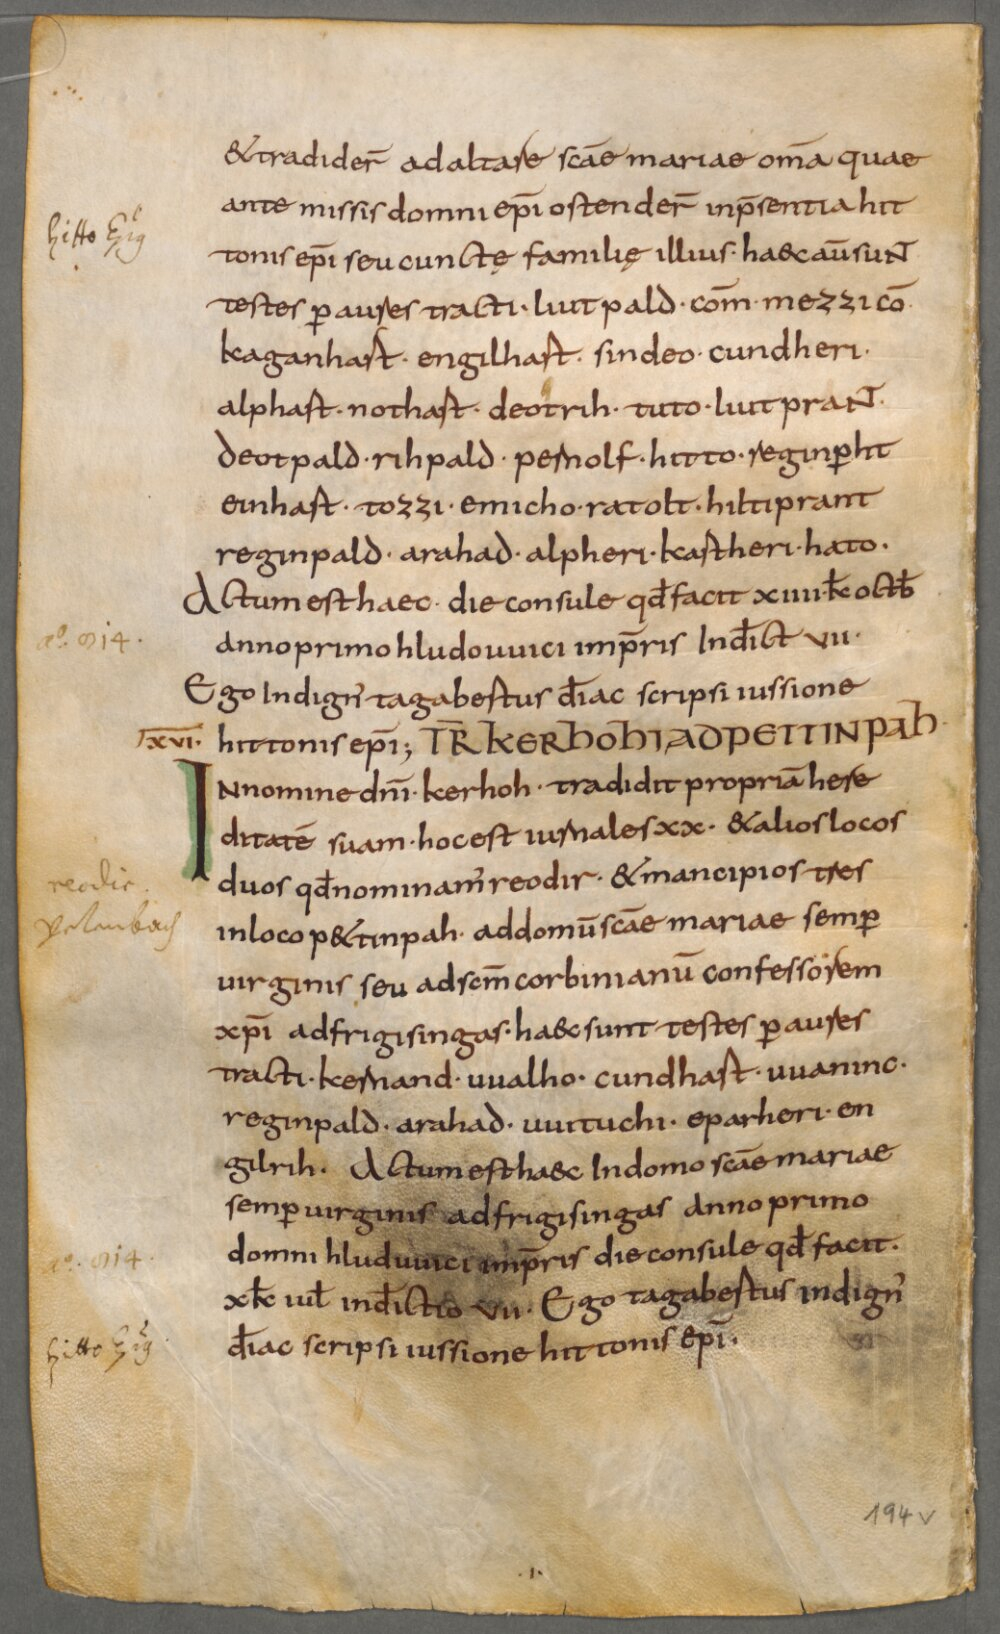 &tradider̄ ad altare scāe mariae om̄a quae
ante missis domni ep̄i ostender̄ inp̄sentia hit
hitto Ep̄ig
tonis ep̄i seu cunctę familię illius· ha&c aūt sunt
testes p̄ aures tracti· liutpald· com̄· mezzi cō·
kaganhart· engilhart· sindeo· cundheri·
alphart· nothart· deotrih· tuto· liutprant·
deotpald· rihpald· pernolf· hitto· reginp̄ht
einhart· tozzi· emicho· ratolt· hiltiprant
reginpald· arahad· alpheri· kartheri· hato·
Actum est haec· die consule qđ facit xiiii·k̄ octb̄
aº· 814·
anno primo hludouuici imp̄ris Indīct vii·
Ego Indigñ tagabertus điac scripsi iussione
xvi· hittonis ep̄i; TR̄ KERHOHI AD PETTINPAH
INnomine dn̄i· kerhoh· tradidit propriā here
ditatē suam· hoc est iurnales xx· &alios locos
reodir·
duos qđ nominam̄ reodir· &mancipios tres
in loco p&tinpah· ad domū scāe mariae semp̄
uirginis seu ad scm̄ corbinianū confessorem
xp̄i ad frigisingas· ha&c sunt testes p̄ aures
tracti· kernand· uualho· cundhart· uuaninc·
reginpald· arahad· uuituchi· eparheri· en
gilrih· Actum est ha&c In domo scāe mariae
semp̄ uirginis ad frigisingas Anno primo
aº· 814·
domni hluduuici imp̄ris die consule qđ facit·
xk̄ iul̄ indīctio vii· Ego tagabertus indigñ
hitto Ep̄ig
điac scripsi iussione hittonis ep̄i·
194v
·1·